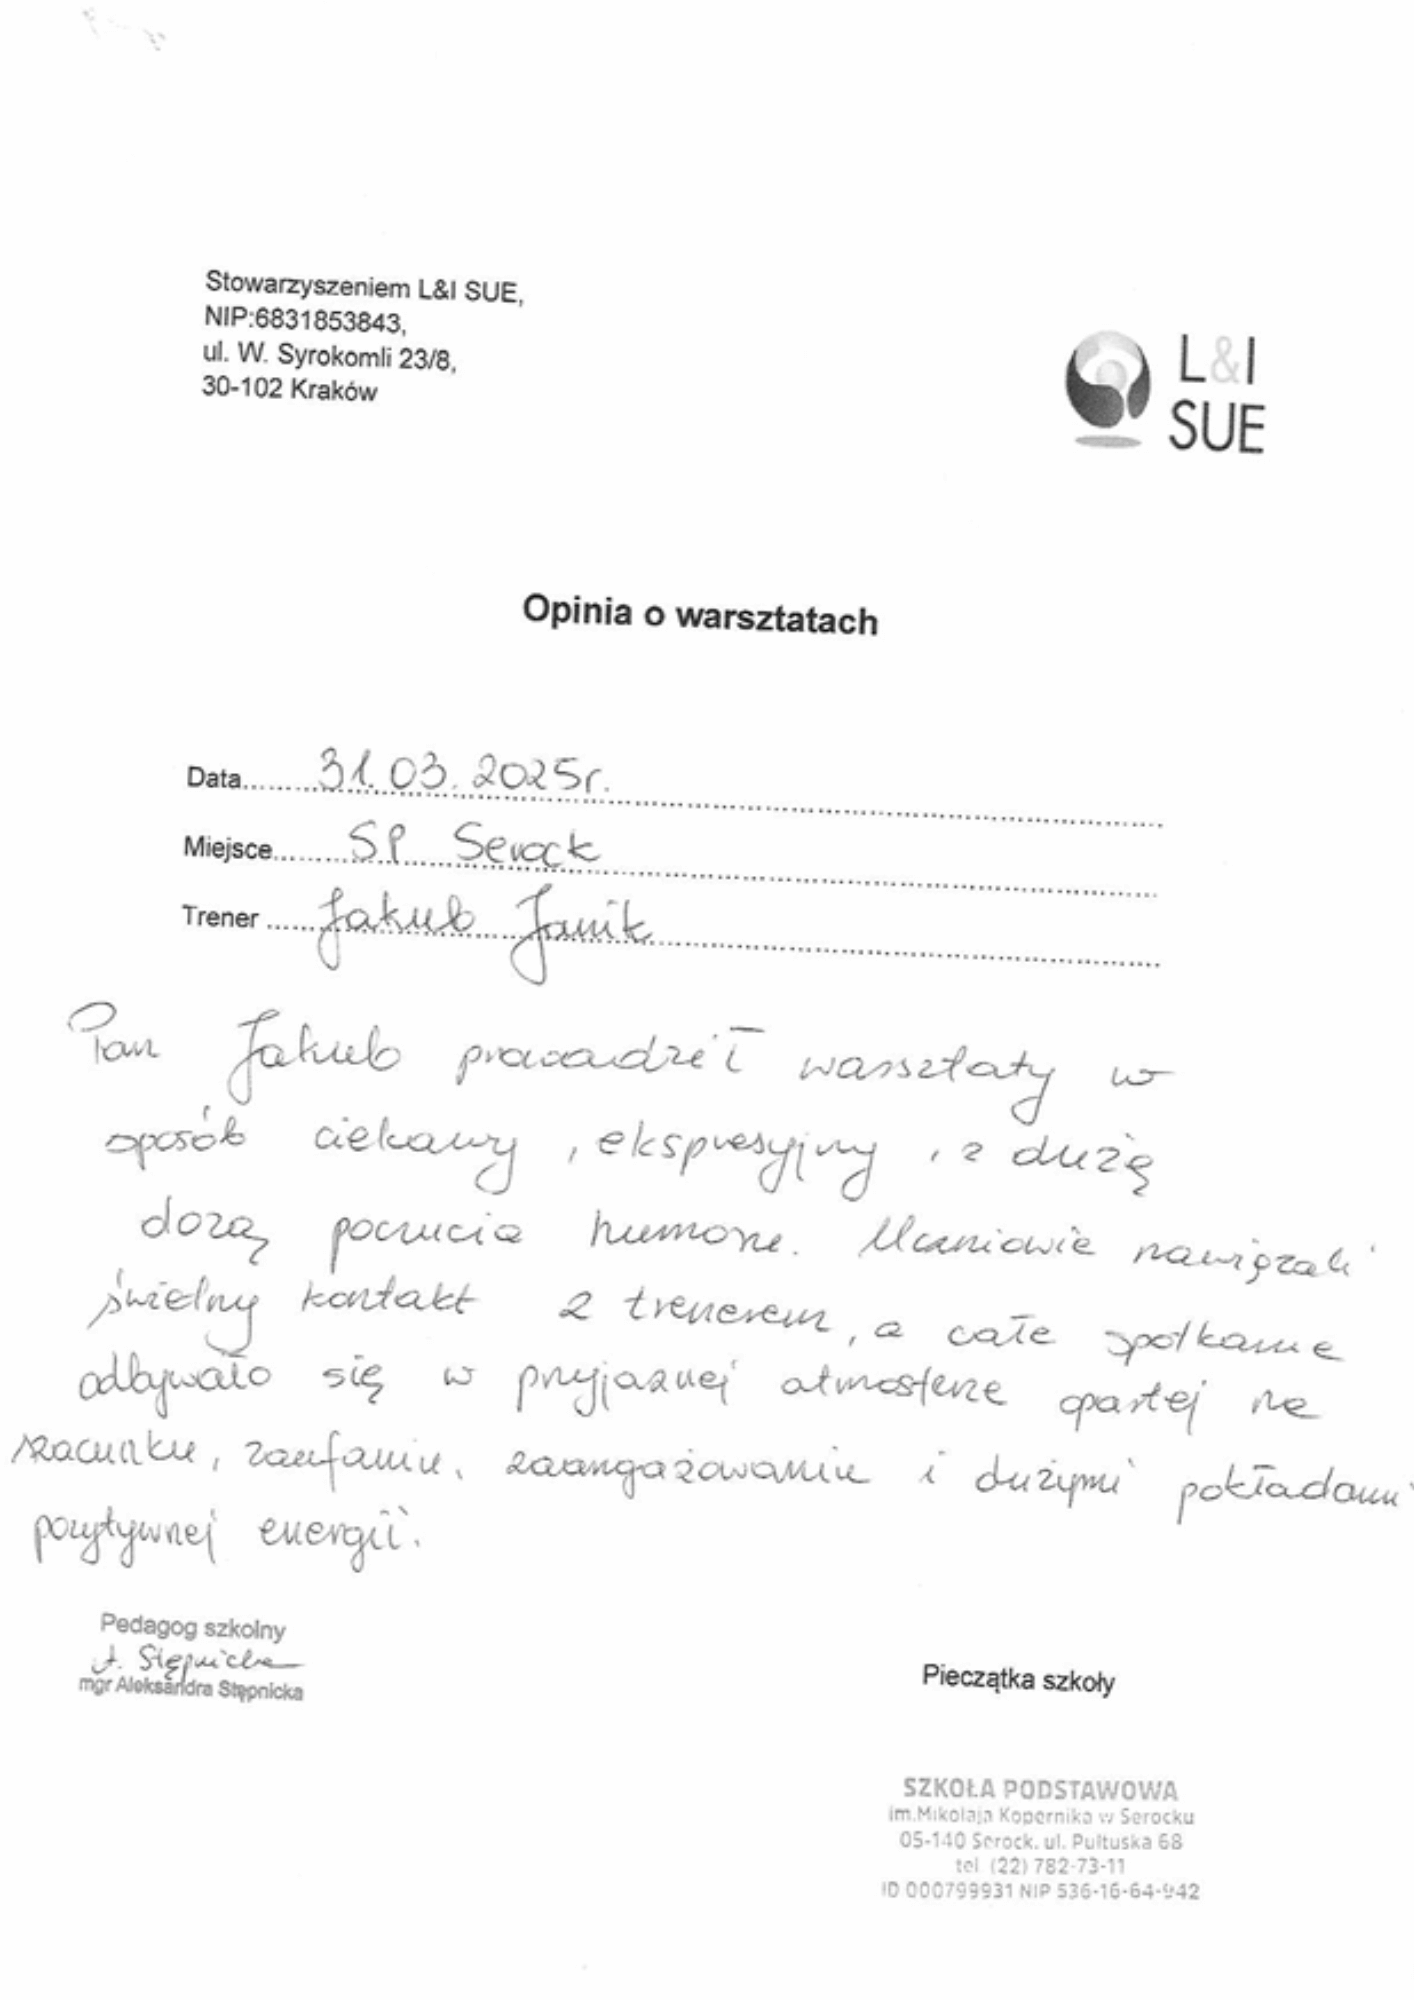 Stowarzyszeniem L&I SUE,
NIP:6831853843,
ul. W. Syrokomli 23/8,
30-102 Kraków
L&I
SUE
Opinia o warsztatach
Data 31.03.2025r.
Miejsce SP Serock
Trener Jakub Janik
Pan Jakub prowadził warsztaty w
sposób ciekawy, ekspresyjny, z dużą
dozą poczucia humoru. Uczniowie nawiązali
świetny kontakt z trenerem, a całe spotkanie
odbywało się w przyjaznej atmosferze opartej na
szacunku, zaufaniu, zaangażowaniu i dużymi pokładami
pozytywnej energii.
Pedagog szkolny
A. Stępnicka
mgr Aleksandra Stępnicka
Pieczątka szkoły
SZKOŁA PODSTAWOWA
im.Mikołaja Kopernika w Serocku
05-140 Serock, ul. Pułtuska 68
tel. (22) 782-73-11
ID 000799931 NIP 536-16-64-942